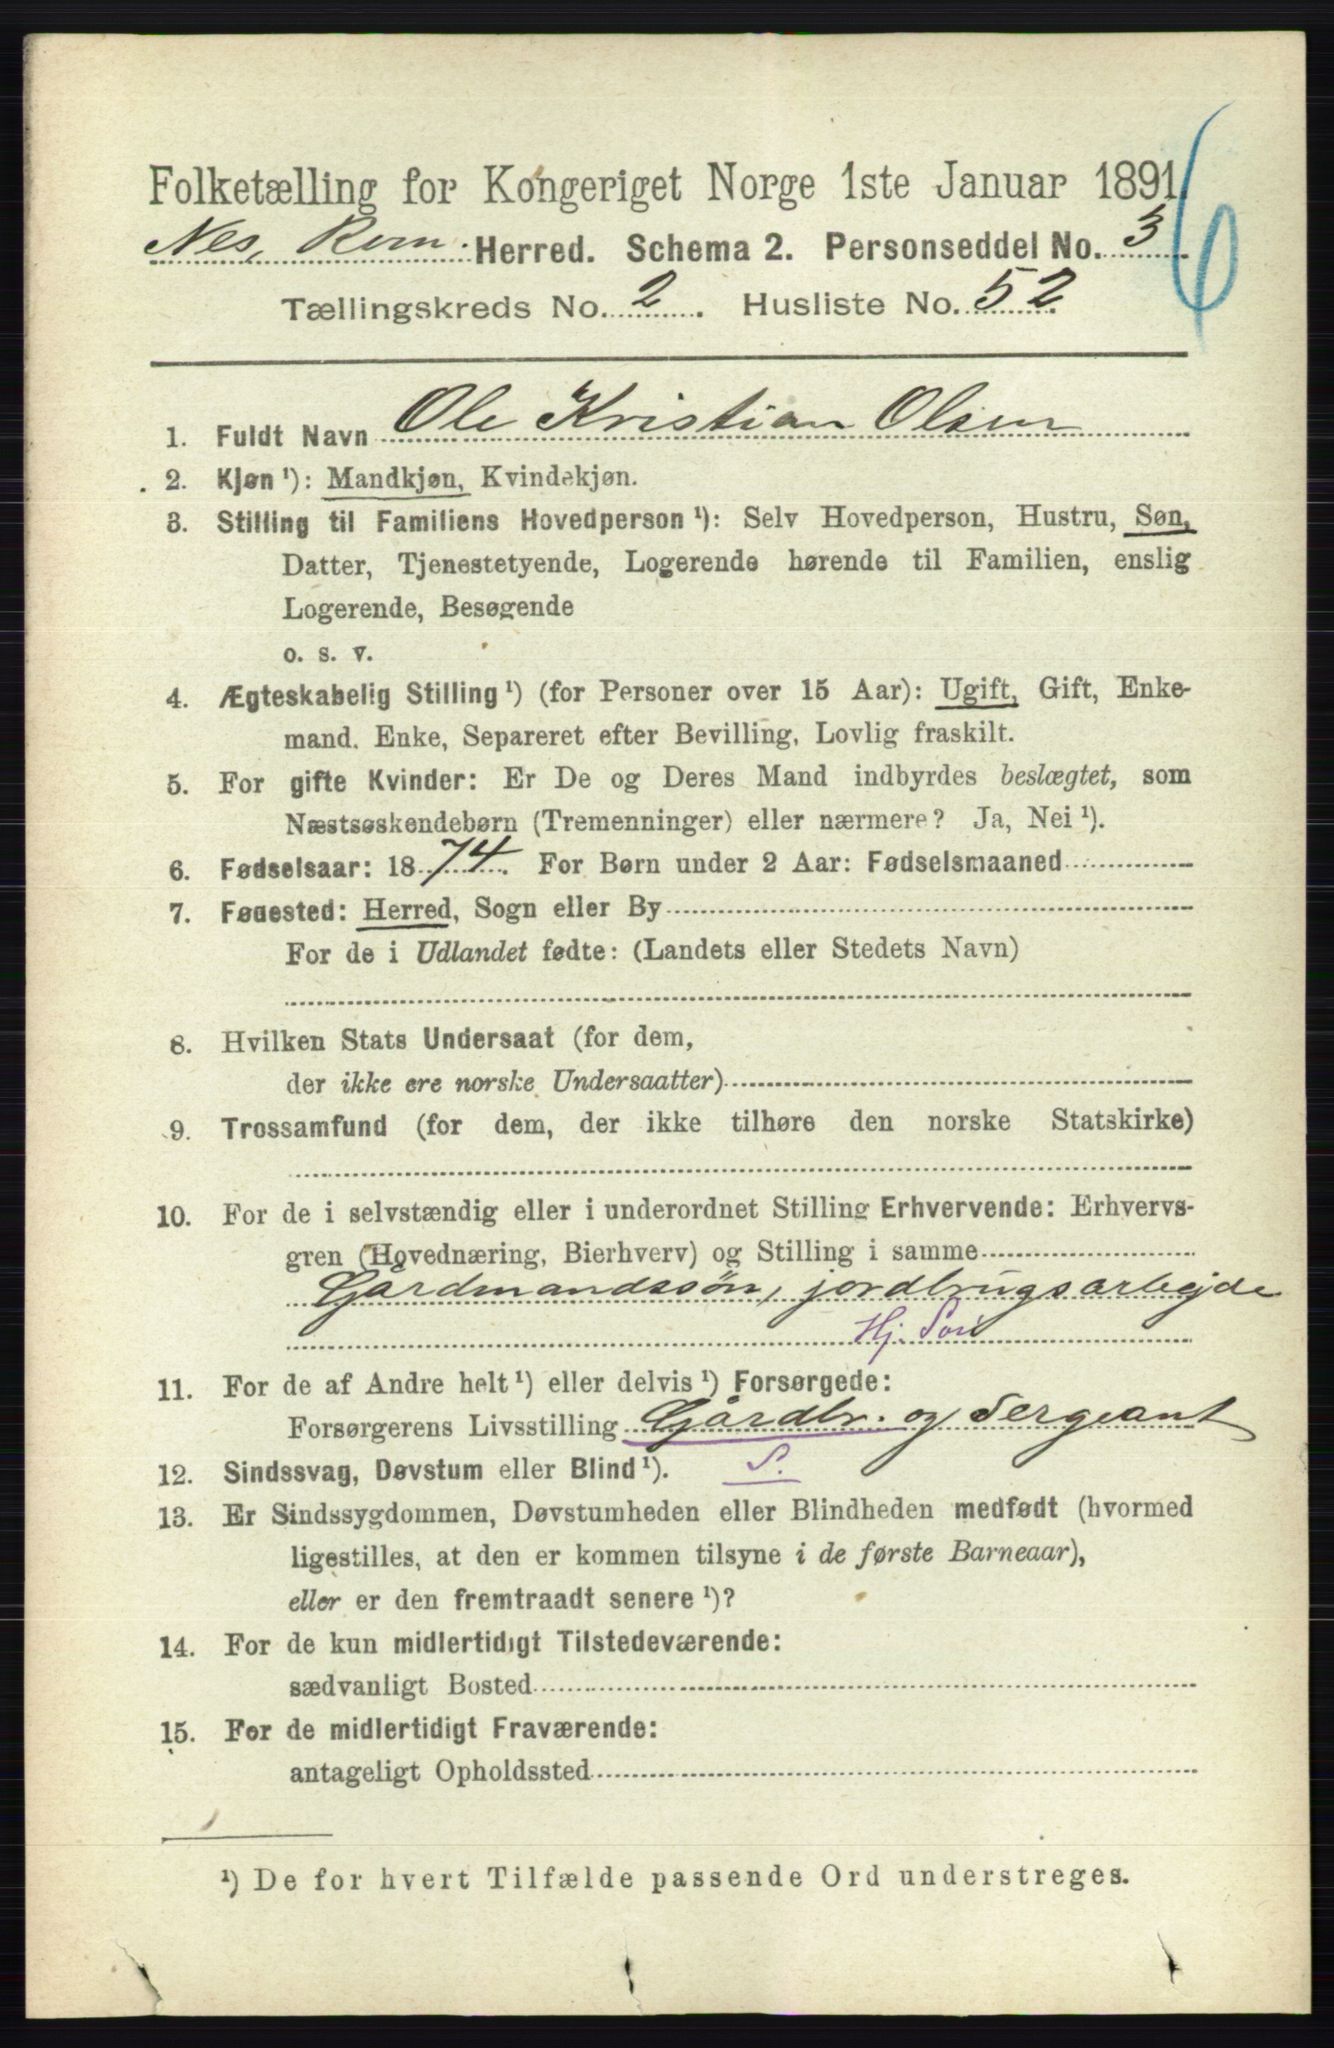 Folketælling for Kongeriget Norge 1ste Januar 1891.
6
Nes, Rom. Herred. Schema 2. Personseddel No. 3
Tællingskreds No. 2. Husliste No. 52
1. Fuldt Navn Ole Kristian Olsen
2. Kjøn ¹): Mandkjøn, Kvindekjøn.
3. Stilling til Familiens Hovedperson ¹): Selv Hovedperson, Hustru, Søn,
Datter, Tjenestetyende, Logerende hørende til Familien, enslig
Logerende, Besøgende
o. s. v.
4. Ægteskabelig Stilling ¹) (for Personer over 15 Aar): Ugift, Gift, Enke-
mand. Enke, Separeret efter Bevilling, Lovlig fraskilt.
5. For gifte Kvinder: Er De og Deres Mand indbyrdes beslægtet, som
Næstsøskendebørn (Tremenninger) eller nærmere? Ja, Nei ¹).
6. Fødselsaar: 1874. For Børn under 2 Aar: Fødselsmaaned
7. Fødested: Herred, Sogn eller By
For de i Udlandet fødte: (Landets eller Stedets Navn)
8. Hvilken Stats Undersaat (for dem,
der ikke ere norske Undersaatter)
9. Trossamfund (for dem, der ikke tilhøre den norske Statskirke)
10. For de i selvstændig eller i underordnet Stilling Erhvervende: Erhvervs-
gren (Hovednæring, Bierhverv) og Stilling i samme
Gårdmandssön, jordbrugsarbejde
Hj. Søn
11. For de af Andre helt ¹) eller delvis ¹) Forsørgede:
Forsørgerens Livsstilling Gårdbr. og Sergeant
12. Sindssvag, Døvstum eller Blind ¹). S.
13. Er Sindssygdommen, Døvstumheden eller Blindheden medfødt (hvormed
ligestilles, at den er kommen tilsyne i de første Barneaar),
eller er den fremtraadt senere ¹)?
14. For de kun midlertidigt Tilstedeværende:
sædvanligt Bosted
15. For de midlertidigt Fraværende:
antageligt Opholdssted
¹) De for hvert Tilfælde passende Ord understreges.